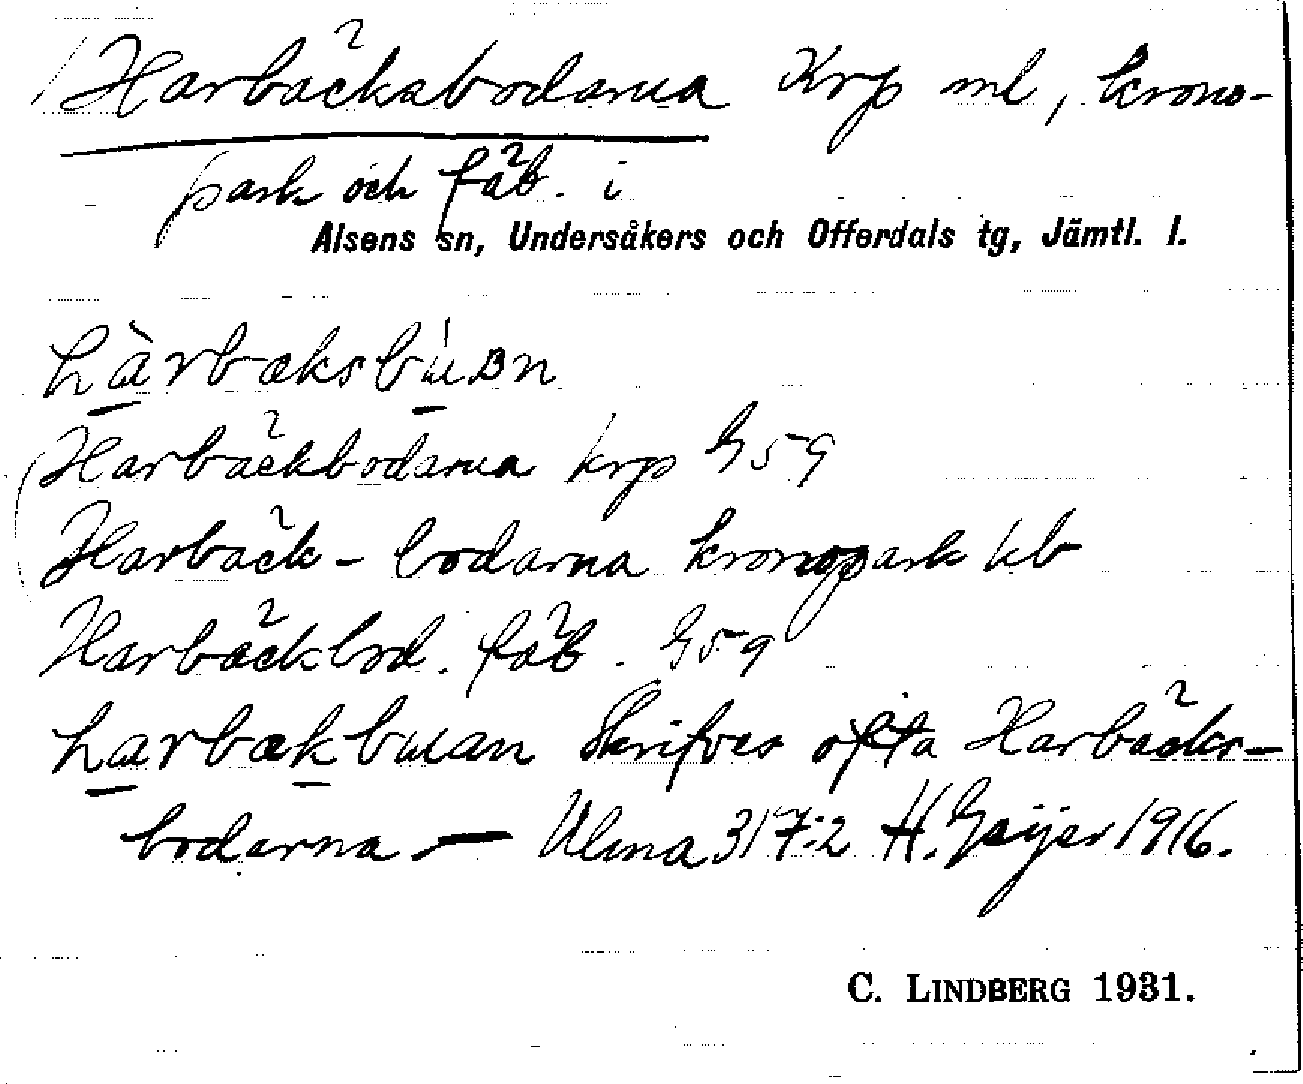 Harbäcksbodarna Krp ml, krono-
park och fäb. i
Alsens sn, Undersåkers och Offerdals tg, Jämtl. l.
hàrbæksbúan
Harbäckbodarna krp G59
Harbäck-bodarna kronopark kb
Harbäckbod. fäb. G59
harbækbuan Skrifves ofta Harbäcks-
bodarna — Ulma 317:2 H. Geijer 1916.
C. LINDBERG 1931.